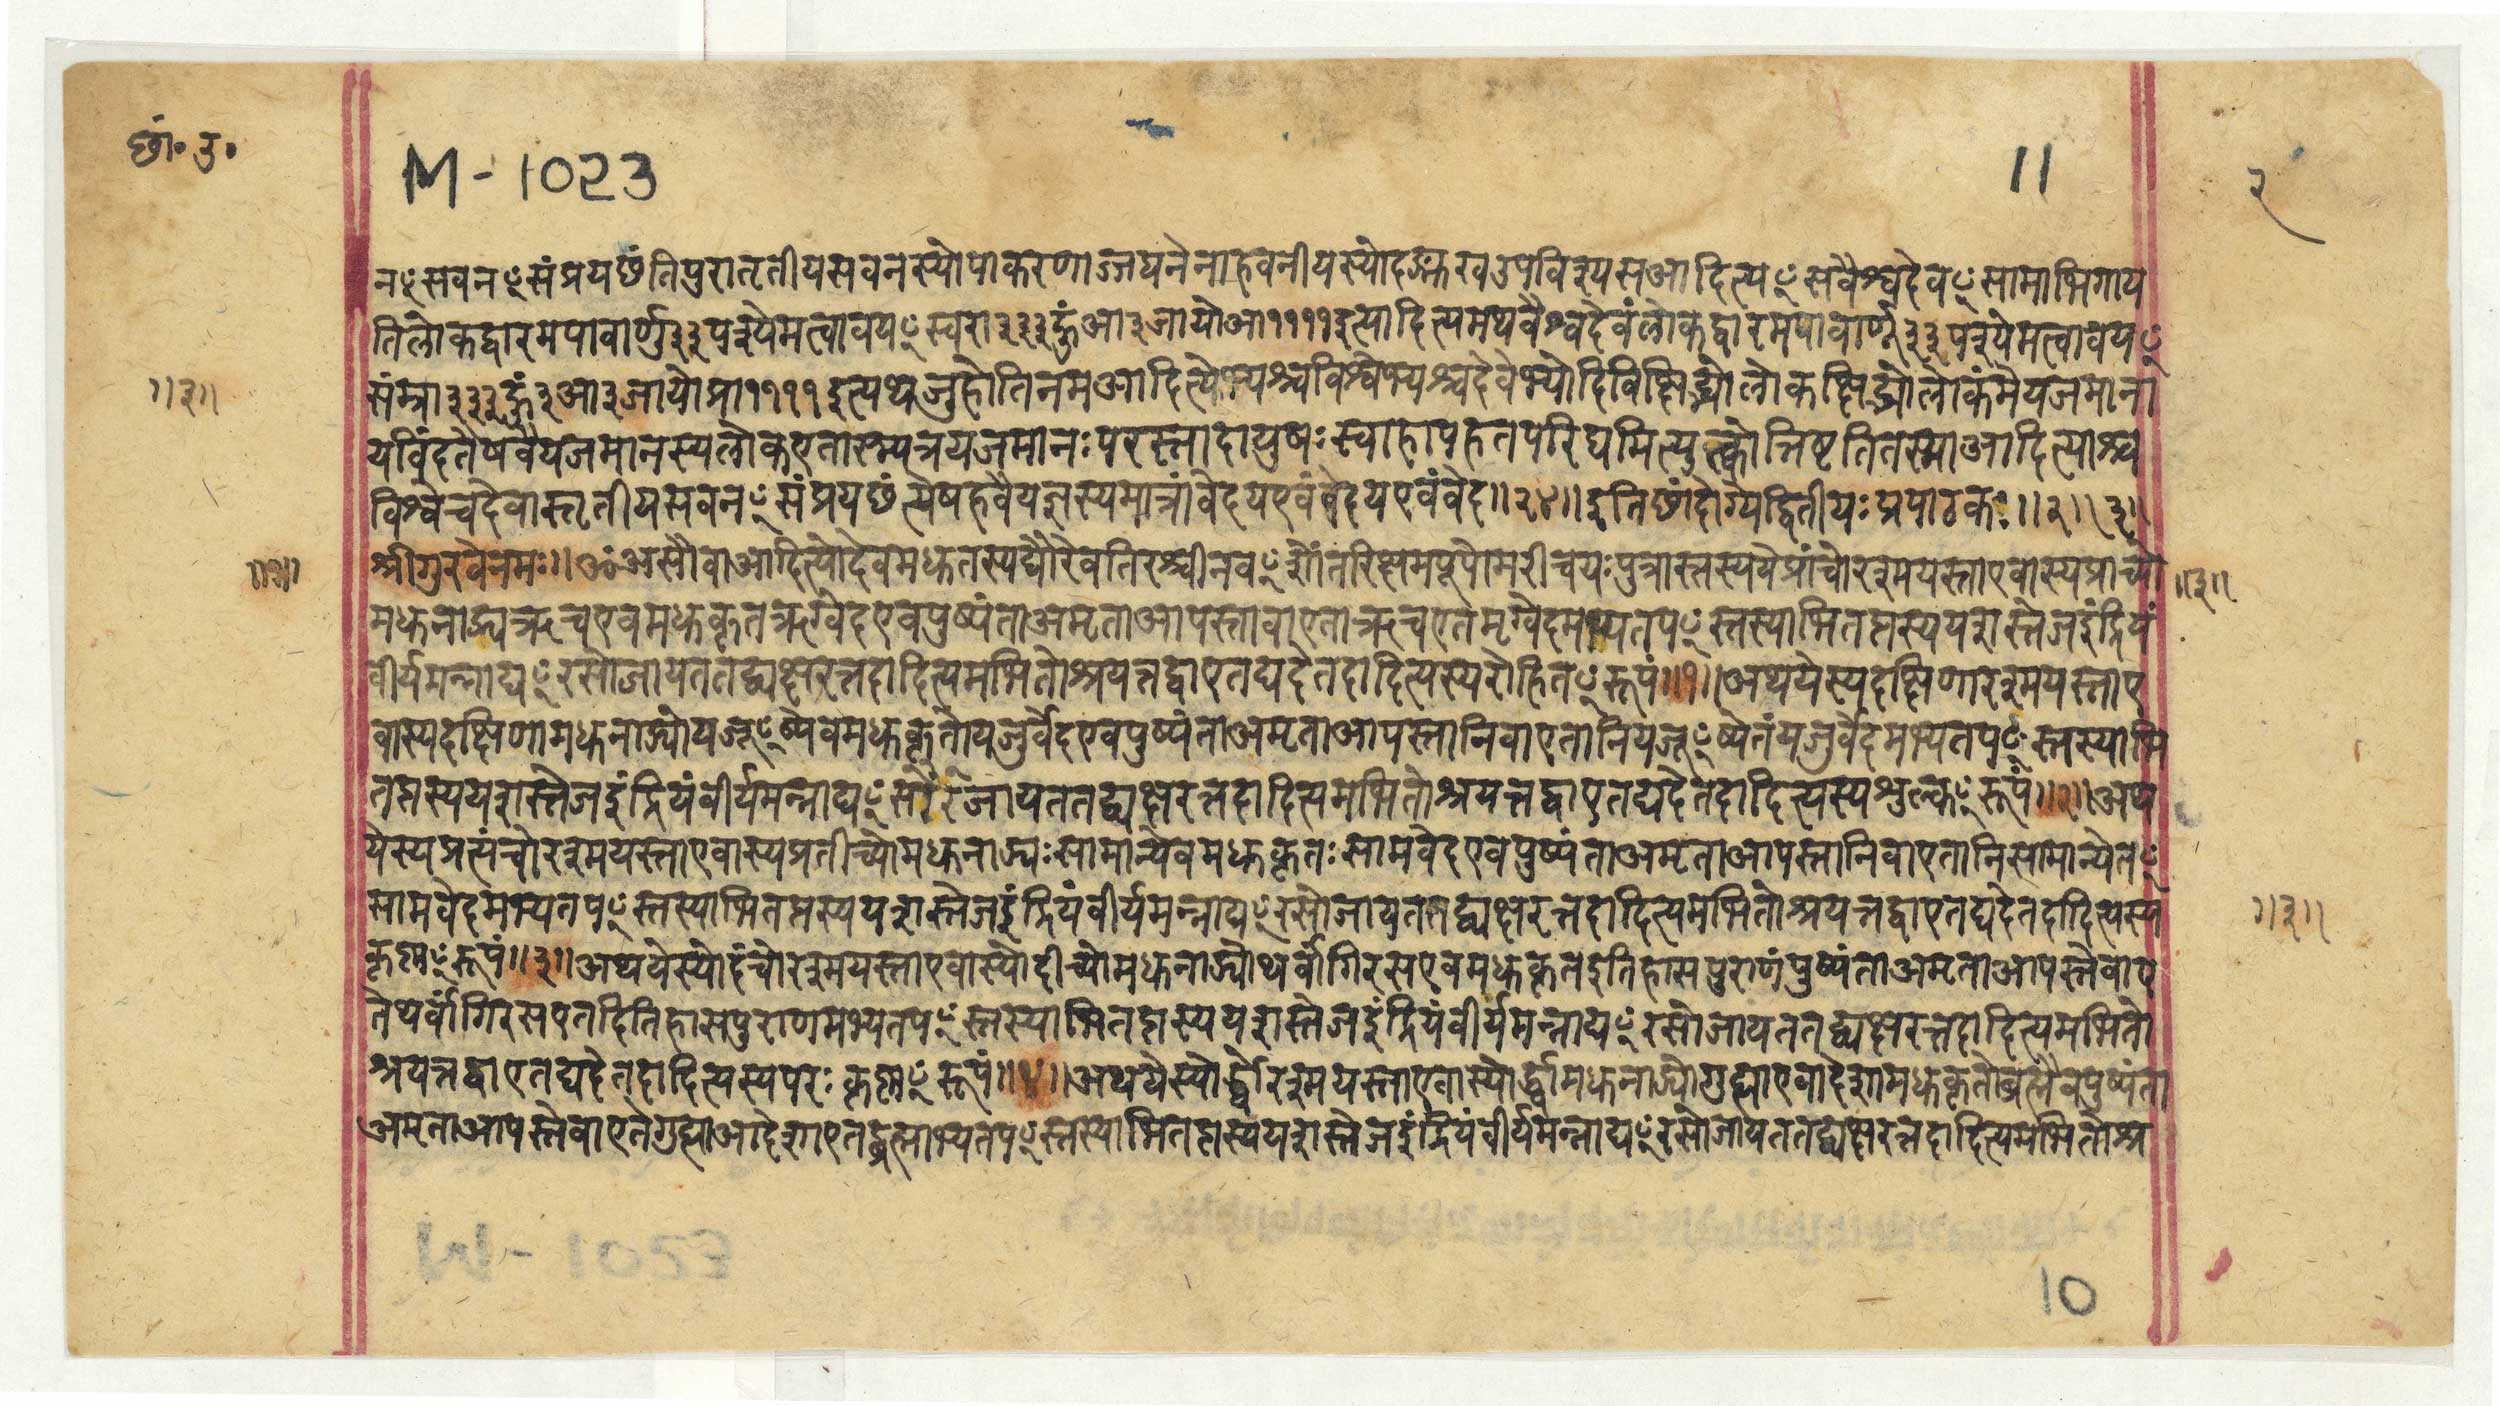 छां॰ उ॰
M - 1023
11
२
नꣳसवनꣳसंप्रयछंतिपुरातृतीयसवनस्योपाकरणाज्जघनेनाहवनीयस्योदङ्मुखउपविश्यसआदित्यꣳसवैश्वदेवꣳसामाभिगाय
तिलोकद्वारमपावार्णू३३पश्येमत्वावयꣳस्वरा३३३हुंआ३ज्यायोआ११११इत्यादित्यमथवैश्वदेवंलोकद्वारमपावार्णू३३पश्येमत्वावयꣳ
संम्रा३३३हुं३आ३ज्यायोआ११११इत्यथजुहोतिनमआदित्येभ्यश्चविश्वेभ्यश्चदेवेभ्योदिविक्षिद्भ्योलोकक्षिद्भ्योलोकंमेयजमाना
॥३॥
यविंदतैषवैयजमानस्यलोकएतास्म्यत्रयजमानःपरस्तादायुषःस्वाहापहतपरिघमित्युत्क्वोत्तिष्टतितस्माआदित्याश्च
विश्वेचदेवास्तृतीयसवनꣳसंप्रयछंत्येषहवैयज्ञस्यमात्रांवेदयएवंवेदयएवंवेद॥२४॥इतिछांदोग्येद्वितीयःप्रपाठकः॥२॥३॥
श्रीगुरवेनमः॥ॐअसौवाआदित्योदेवमधुतस्यद्यौरेवतिरश्चीनवꣳशोंतरिक्षमपूपोमरीचयःपुत्रास्तस्ययेप्रांचोरश्मयस्ताएवास्यप्राच्यो
॥३॥
मधुनाड्यऋचएवमधुकृतऋग्वेदएवपुष्पंताअमृताआपस्तावाएताऋचएतमृग्वेदमभ्यतपꣳस्तस्याभितप्तस्ययशस्तेजइंद्रियं
वीर्यमन्नाद्यꣳरसोजायततद्व्यक्षरत्तदादित्यमभितोश्रयत्तद्वाएतद्यदेतदादित्यस्यरोहितꣳरूपं॥१॥अथयेस्यदक्षिणारश्मयस्ताए
वास्यदक्षिणामधुनाड्योयजूꣳष्येवमधुकृतोयजुर्वेदएवपुष्पंताअमृताआपस्तानिवाएतानियजूꣳष्येतंयजुर्वेदमभ्यतपꣳस्तस्याभि
तप्तस्ययशस्तेजइंद्रियंवीर्यमन्नाद्यꣳसोरजायततद्व्यक्षरत्तदादित्यमभितोश्रयत्तद्वाएतद्यदेतदादित्यस्यशुल्कꣳरूपं॥२॥अथ
येस्यप्रत्यंचोरश्मयस्ताएवास्यप्रतीच्योमधुनाड्यःसामान्येवमधुकृतःसामवेदएवपुष्पंताअमृताआपस्तानिवाएतानिसामान्येतꣳ
सामवेदमभ्यतपꣳस्तस्याभितप्तस्ययशस्तेजइंद्रियंवीर्यमन्नाद्यꣳरसोजायततद्व्यक्षरत्तदादित्यमभितोश्रयत्तद्वाएतद्यदेतदादित्यस्य
॥३॥
कृष्णꣳरूपं॥३॥अथयेस्योदंचोरश्मयस्ताएवास्योदीच्योमधुनाड्योथर्वांगिरसएवमधुकृतइतिहासपुराणंपुष्पंताअमृताआपस्तेवाए
तेथर्वांगिरसएतदितिहासपुराणमभ्यतपꣳस्तस्याभितप्तस्ययशस्तेजइंद्रियंवीर्यमन्नाद्यꣳरसोजायततद्व्यक्षरत्तदादित्यमभितो
श्रयत्तद्वाएतद्यदेतदादित्यस्यपरःकृष्णꣳरूपं॥४॥अथयेस्योर्द्ध्वारश्मयस्ताएवास्योर्द्ध्वामधुनाड्योगुह्याएवादेशामधुकृतोब्रह्मैवपुष्पंता
अमृताआपस्तेवाएतेगुह्याआदेशाएतद्ब्रह्माभ्यतपꣳस्तस्याभितप्तस्ययशस्तेजइंद्रियंवीर्यमन्नाद्यꣳरसोजायततद्व्यक्षरत्तदादित्यमभितोश्र
10